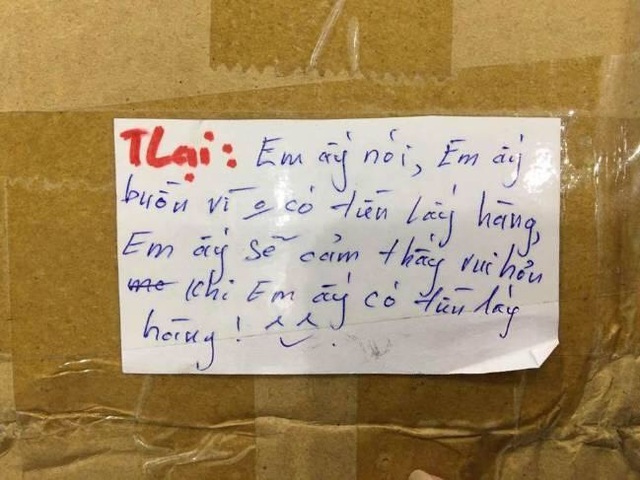 TLại: Em ấy nói, Em ấy
buồn vì o có tiền lấy hàng,
Em ấy sẽ cảm thấy vui hơn
khi Em ấy có tiền lấy
hàng! ^^